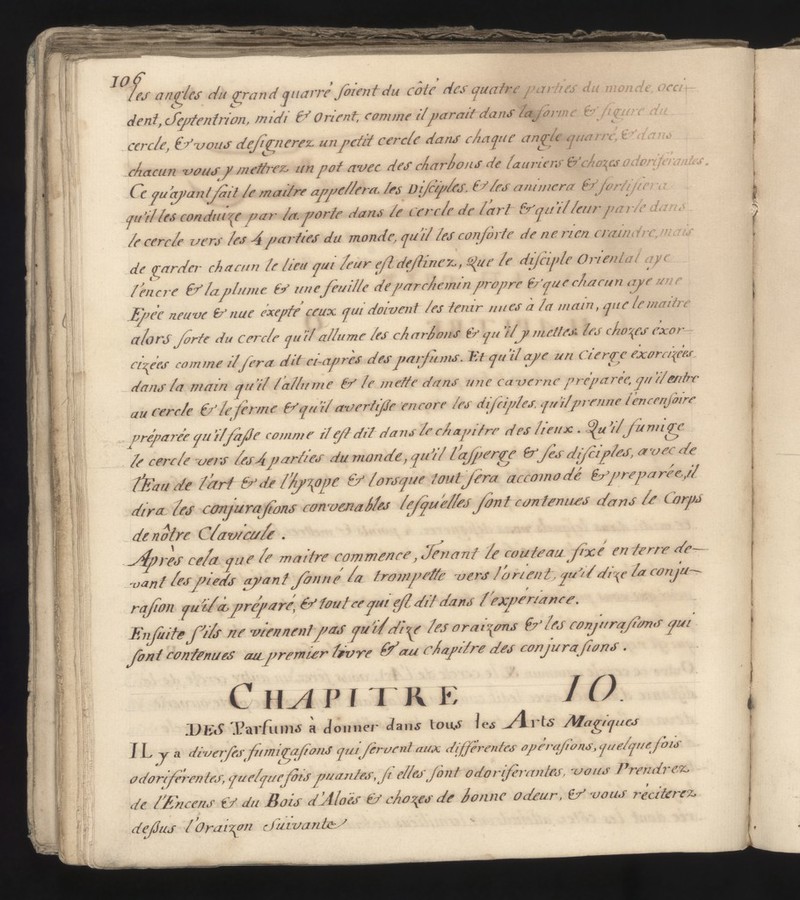 106
les angles du grand quarré soient du côté des quatre parties du monde, occi-
dent, Septentrion, midi & Orient, comme il parait dans la forme & figure du
cercle, & vous designerez un petit cercle dans chaque angle quarré, & dans
chacun vous y mettrez un pot avec des charbons de lauriers & chozes odoriférantes.
Ce qu'ayant fait le maitre appellera les Disciples, & les animera & fortifiera
qu'il les conduize par la porte dans le cercle de l'art & qu'il leur parle dans
le cercle vers les 4 parties du monde, qu'il les conforte de ne rien craindre, mais
de garder chacun le lieu qui leur est destinez, Que le disciple Oriental aye
l'encre & la plume & une feuille de parchemin propre & que chacun aye une
Epée neuve & nue éxepté ceux qui doivent les tenir nues à la main, que le maitre
alors sorte du cercle qu'il allume les charbons & qu'il y mettes les chozes éxor-
cizées comme il sera dit ci-après des parfums. Et qu'il aye un Cierge éxorcizées
dans la main qu'il l'allume & le mette dans une caverne préparée, qu'il entre
au cercle & le ferme & qu'il avertisse encore les disciples, qu'il prenne l'encensoire
préparée qu'il fasse comme il est dit dans le chapitre des lieux. Qu'il fumige
le cercle vers les 4 parties du monde, qu'il l'asperge & ses disciples, avec de
l'Eau de l'art & de l'hyzope & lorsque tout sera accomodé & preparée, il
dira les conjurasions convenables lesquelles sont contenues dans le Corps
de nôtre Clavicule.
Après cela que le maitre commence, Tenant le couteau fixé en terre de-
vant les pieds ayant sonné la trompette vers l'orient, qu'il dize la conju-
rasion qu'il à préparé, & tout ce qui est dit dans l'expériance.
Ensuite s'ils ne viennent pas qu'il dize les oraizons & les conjurasions qui
sont contenues au premier livre & au chapitre des conjurasions.
CHAPITRE 10.
DES Parfums à donner dans tous les Arts Magiques
IL y a diverses fumigasions qui servent aux différentes opérasions, quelque fois
odoriférentes, quelque fois puantes, si elles sont odoriferantes, vous Prendrez
de l'Encens & du Bois d'Aloës & chozes de bonne odeur, & vous réciterez
dessus l'Oraizon Suivante